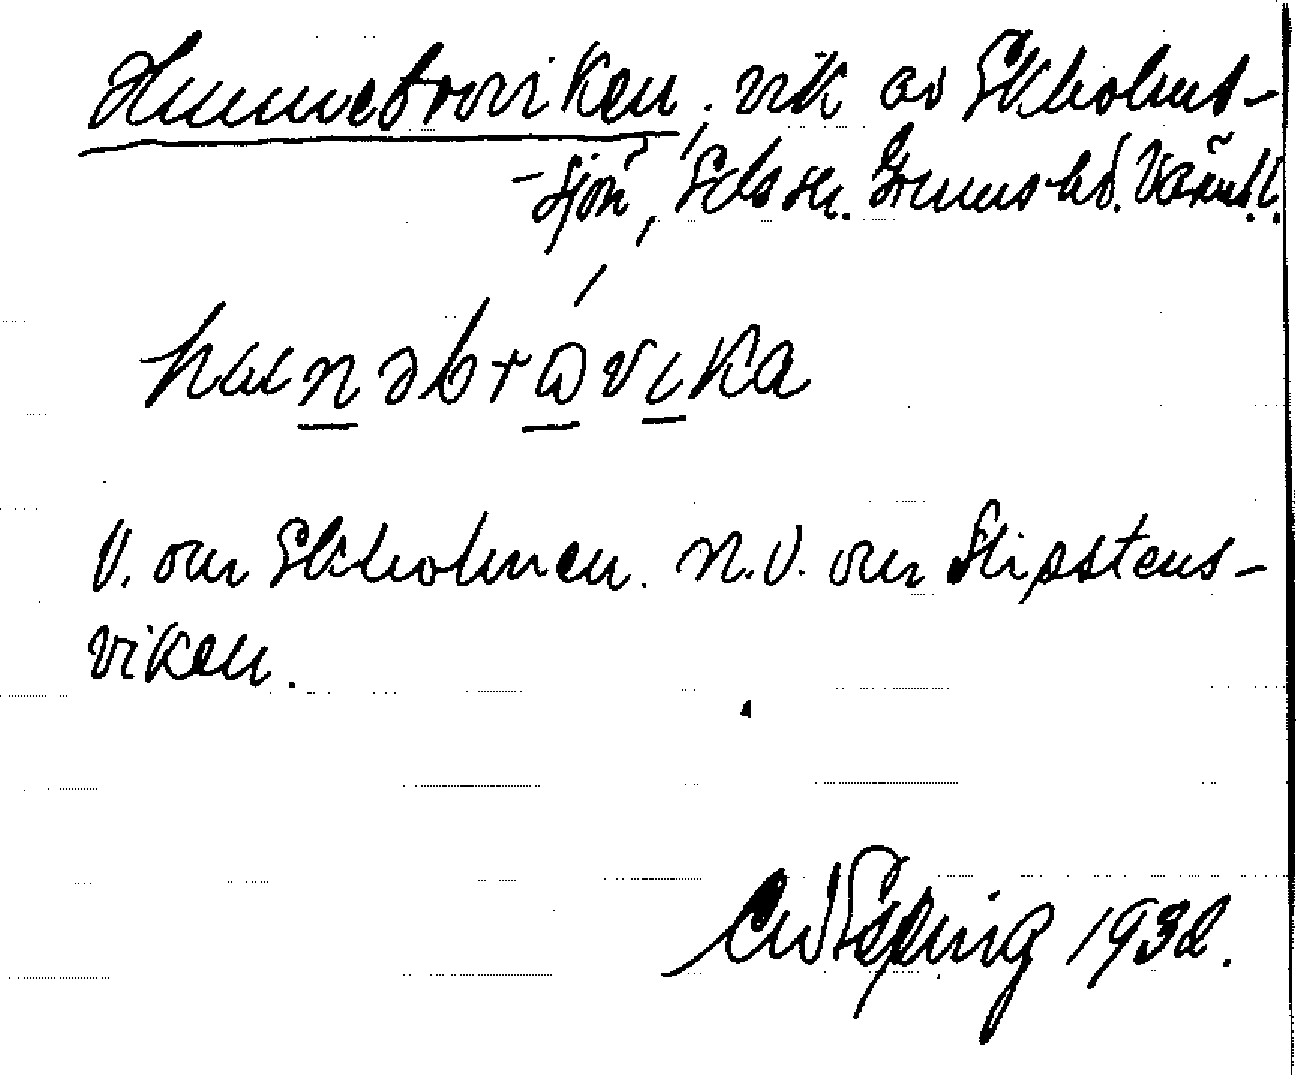 Hunnebroviken, vik av Ekholms-
-sjön, Eds sn. Grums hd. Värml.
hunəbrωvika
V. om Ekholmen. N.V. om Slipstens-
viken.
1932.